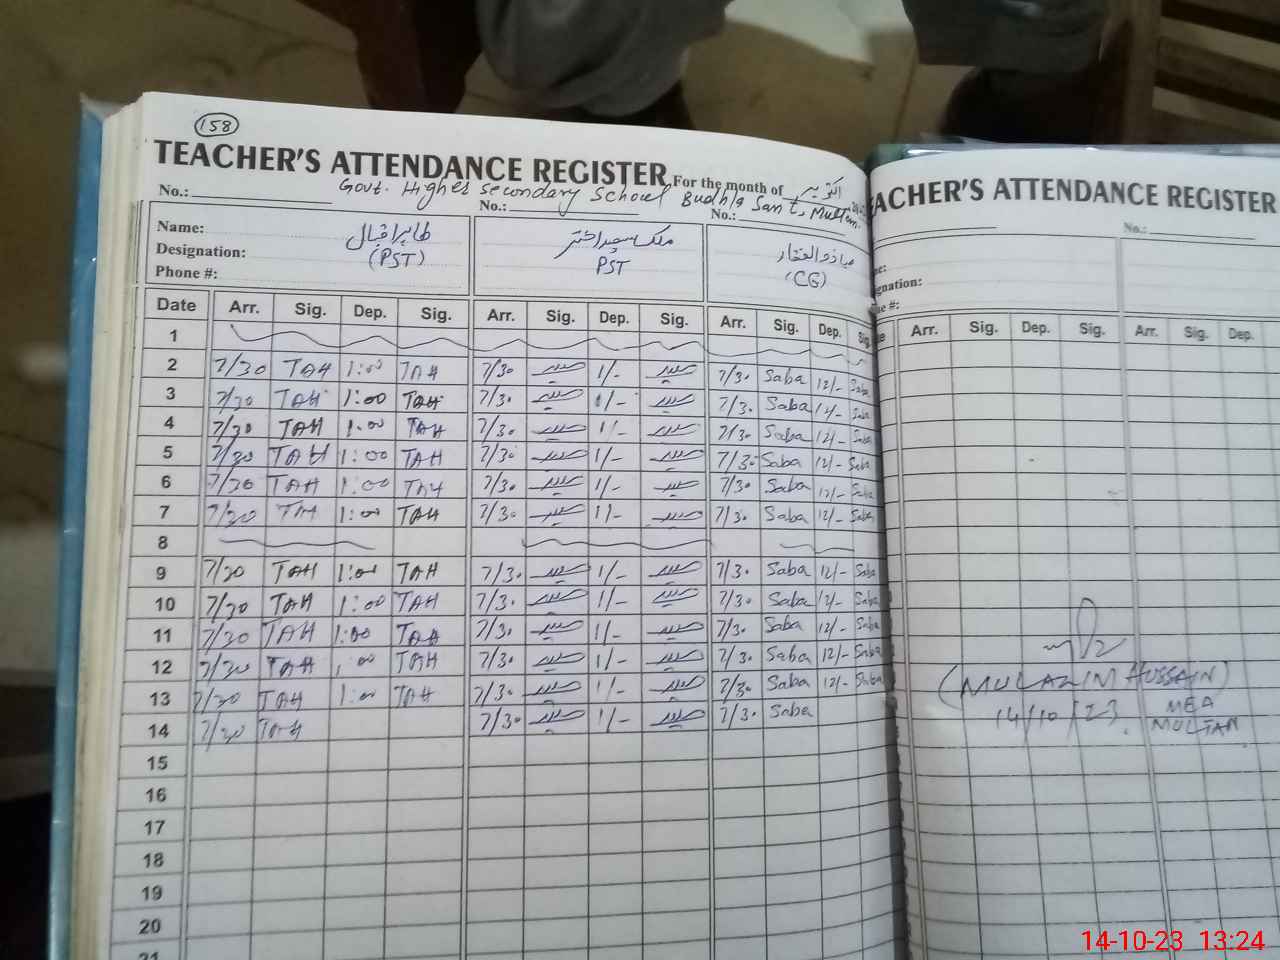 158
TEACHER'S ATTENDANCE REGISTER For the month of اکتوبر
Govt. Higher Secondary School Budhla Sant, Multan.
No.: No.: No.:
Name: طاہر اقبال ملک سعید اختر
Designation: (PST) PST (CG)
Phone #:
Date Arr. Sig. Dep. Sig. Arr. Sig. Dep. Sig. Arr. Sig. Dep. Sig.
1
2 7/30 TAH 1:00 TAH 7/30 1/- 7/30 Saba 12/- Saba
3 7/30 TAH 1:00 TAH 7/30 1/- 7/30 Saba 12/- Saba
4 7/30 TAH 1:00 TAH 7/30 1/- 7/30 Saba 12/- Saba
5 7/30 TAH 1:00 TAH 7/30 1/- 7/30 Saba 12/- Saba
6 7/30 TAH 1:00 TAH 7/30 1/- 7/30 Saba 12/- Saba
7 7/30 TAH 1:00 TAH 7/30 1/- 7/30 Saba 12/- Saba
8
9 7/30 TAH 1:00 TAH 7/30 1/- 7/30 Saba 12/- Saba
10 7/30 TAH 1:00 TAH 7/30 1/- 7/30 Saba 12/- Saba
11 7/30 TAH 1:00 TAH 7/30 1/- 7/30 Saba 12/- Saba
12 7/30 TAH 1:00 TAH 7/30 1/- 7/30 Saba 12/- Saba
13 7/30 TAH 1:00 TAH 7/30 1/- 7/30 Saba 12/- Saba
14 7/30 TAH 7/30 1/- 7/30 Saba
15
16
17
18
19
20
21
EACHER'S ATTENDANCE REGISTER
No.:
me:
signation:
ne #:
e Arr. Sig. Dep. Sig. Arr. Sig. Dep.
(MULAZIM HUSSAIN)
14/10/23 MEA
MULTAN
14-10-23 13:24